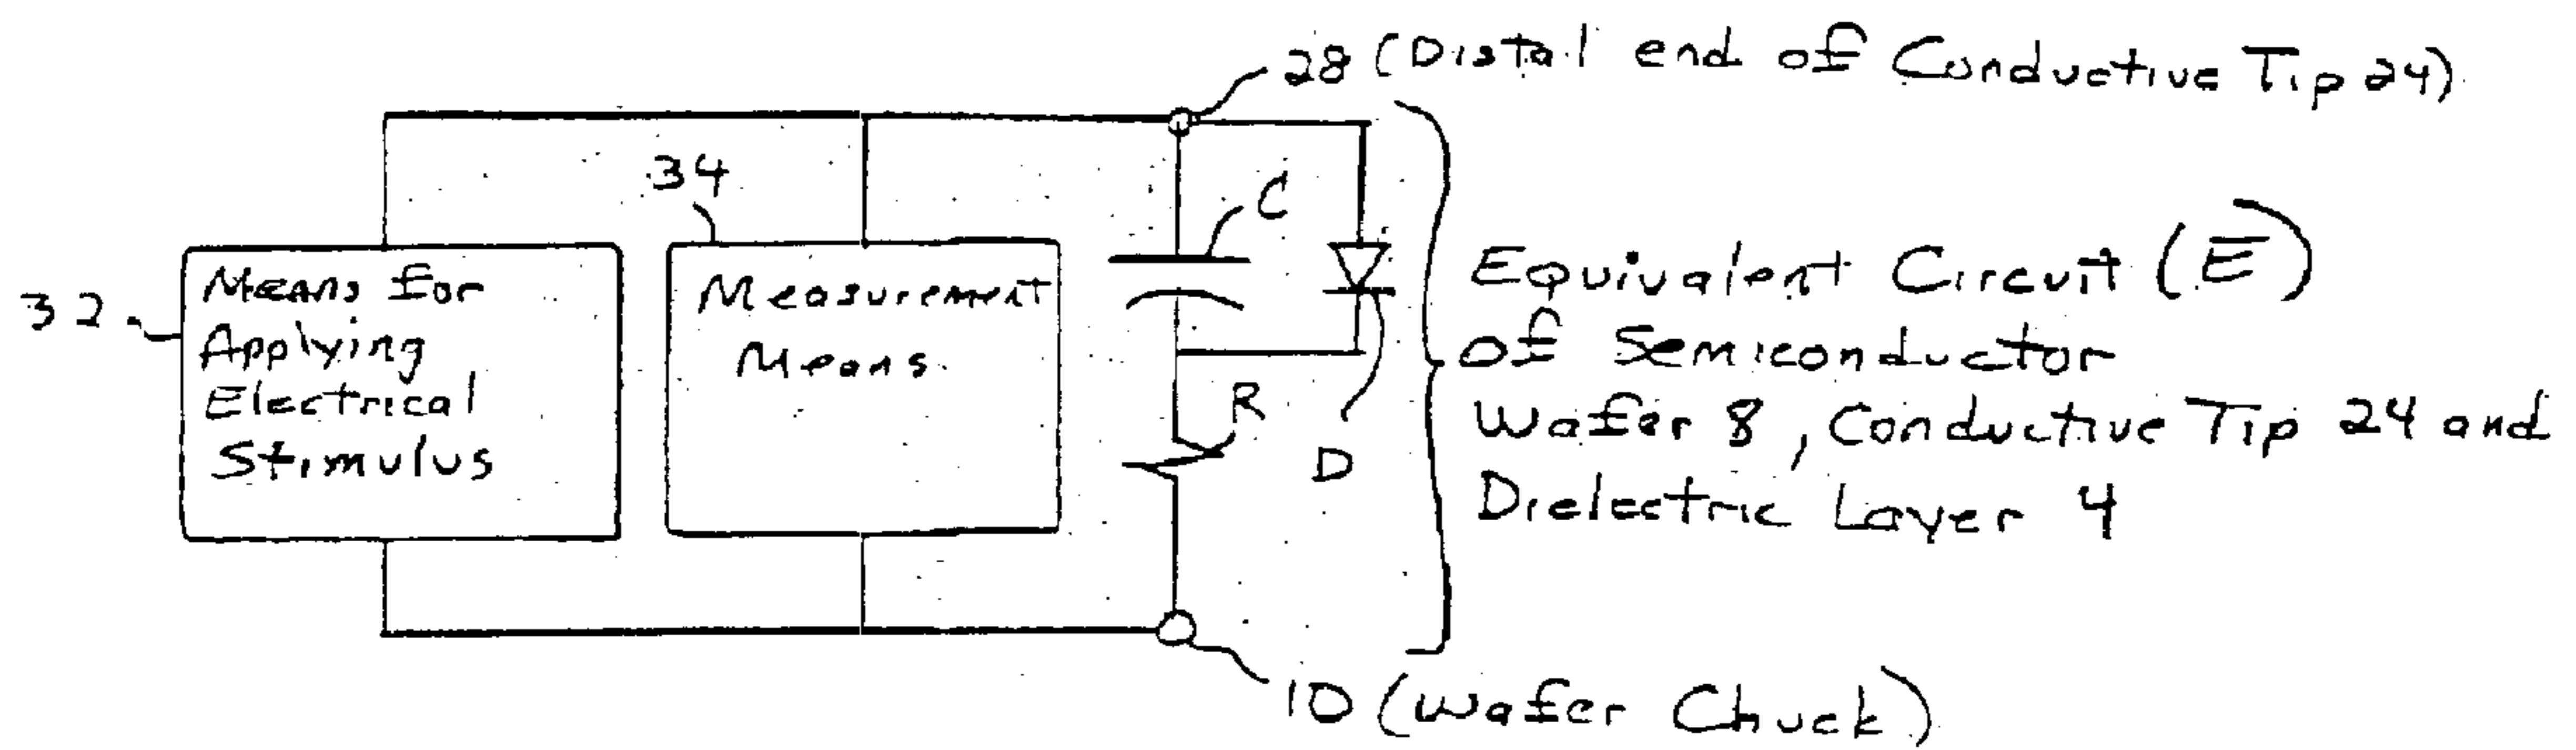 28 (Distal end of Conductive Tip 24)
34
C
32
Means for
Applying
Electrical
Stimulus
Measurement
Means
R
D
Equivalent Circuit (E)
of Semiconductor
Wafer 8, Conductive Tip 24 and
Dielectric Layer 4
10 (Wafer Chuck)